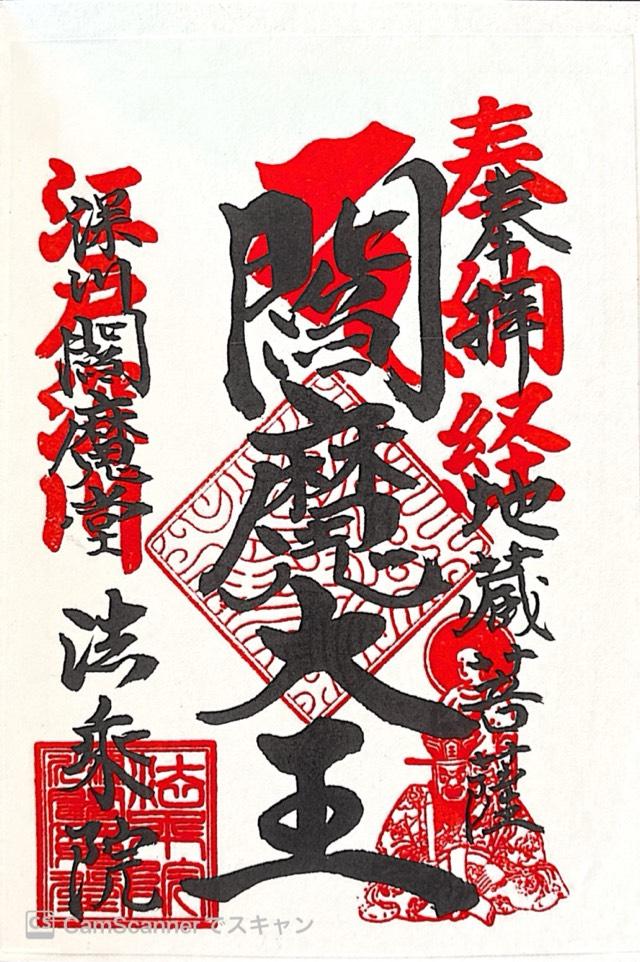 奉拝
地蔵菩薩
奉納経
閻魔大王
深川閻魔堂
法乗院
法乗院
CS CamScanner でスキャン